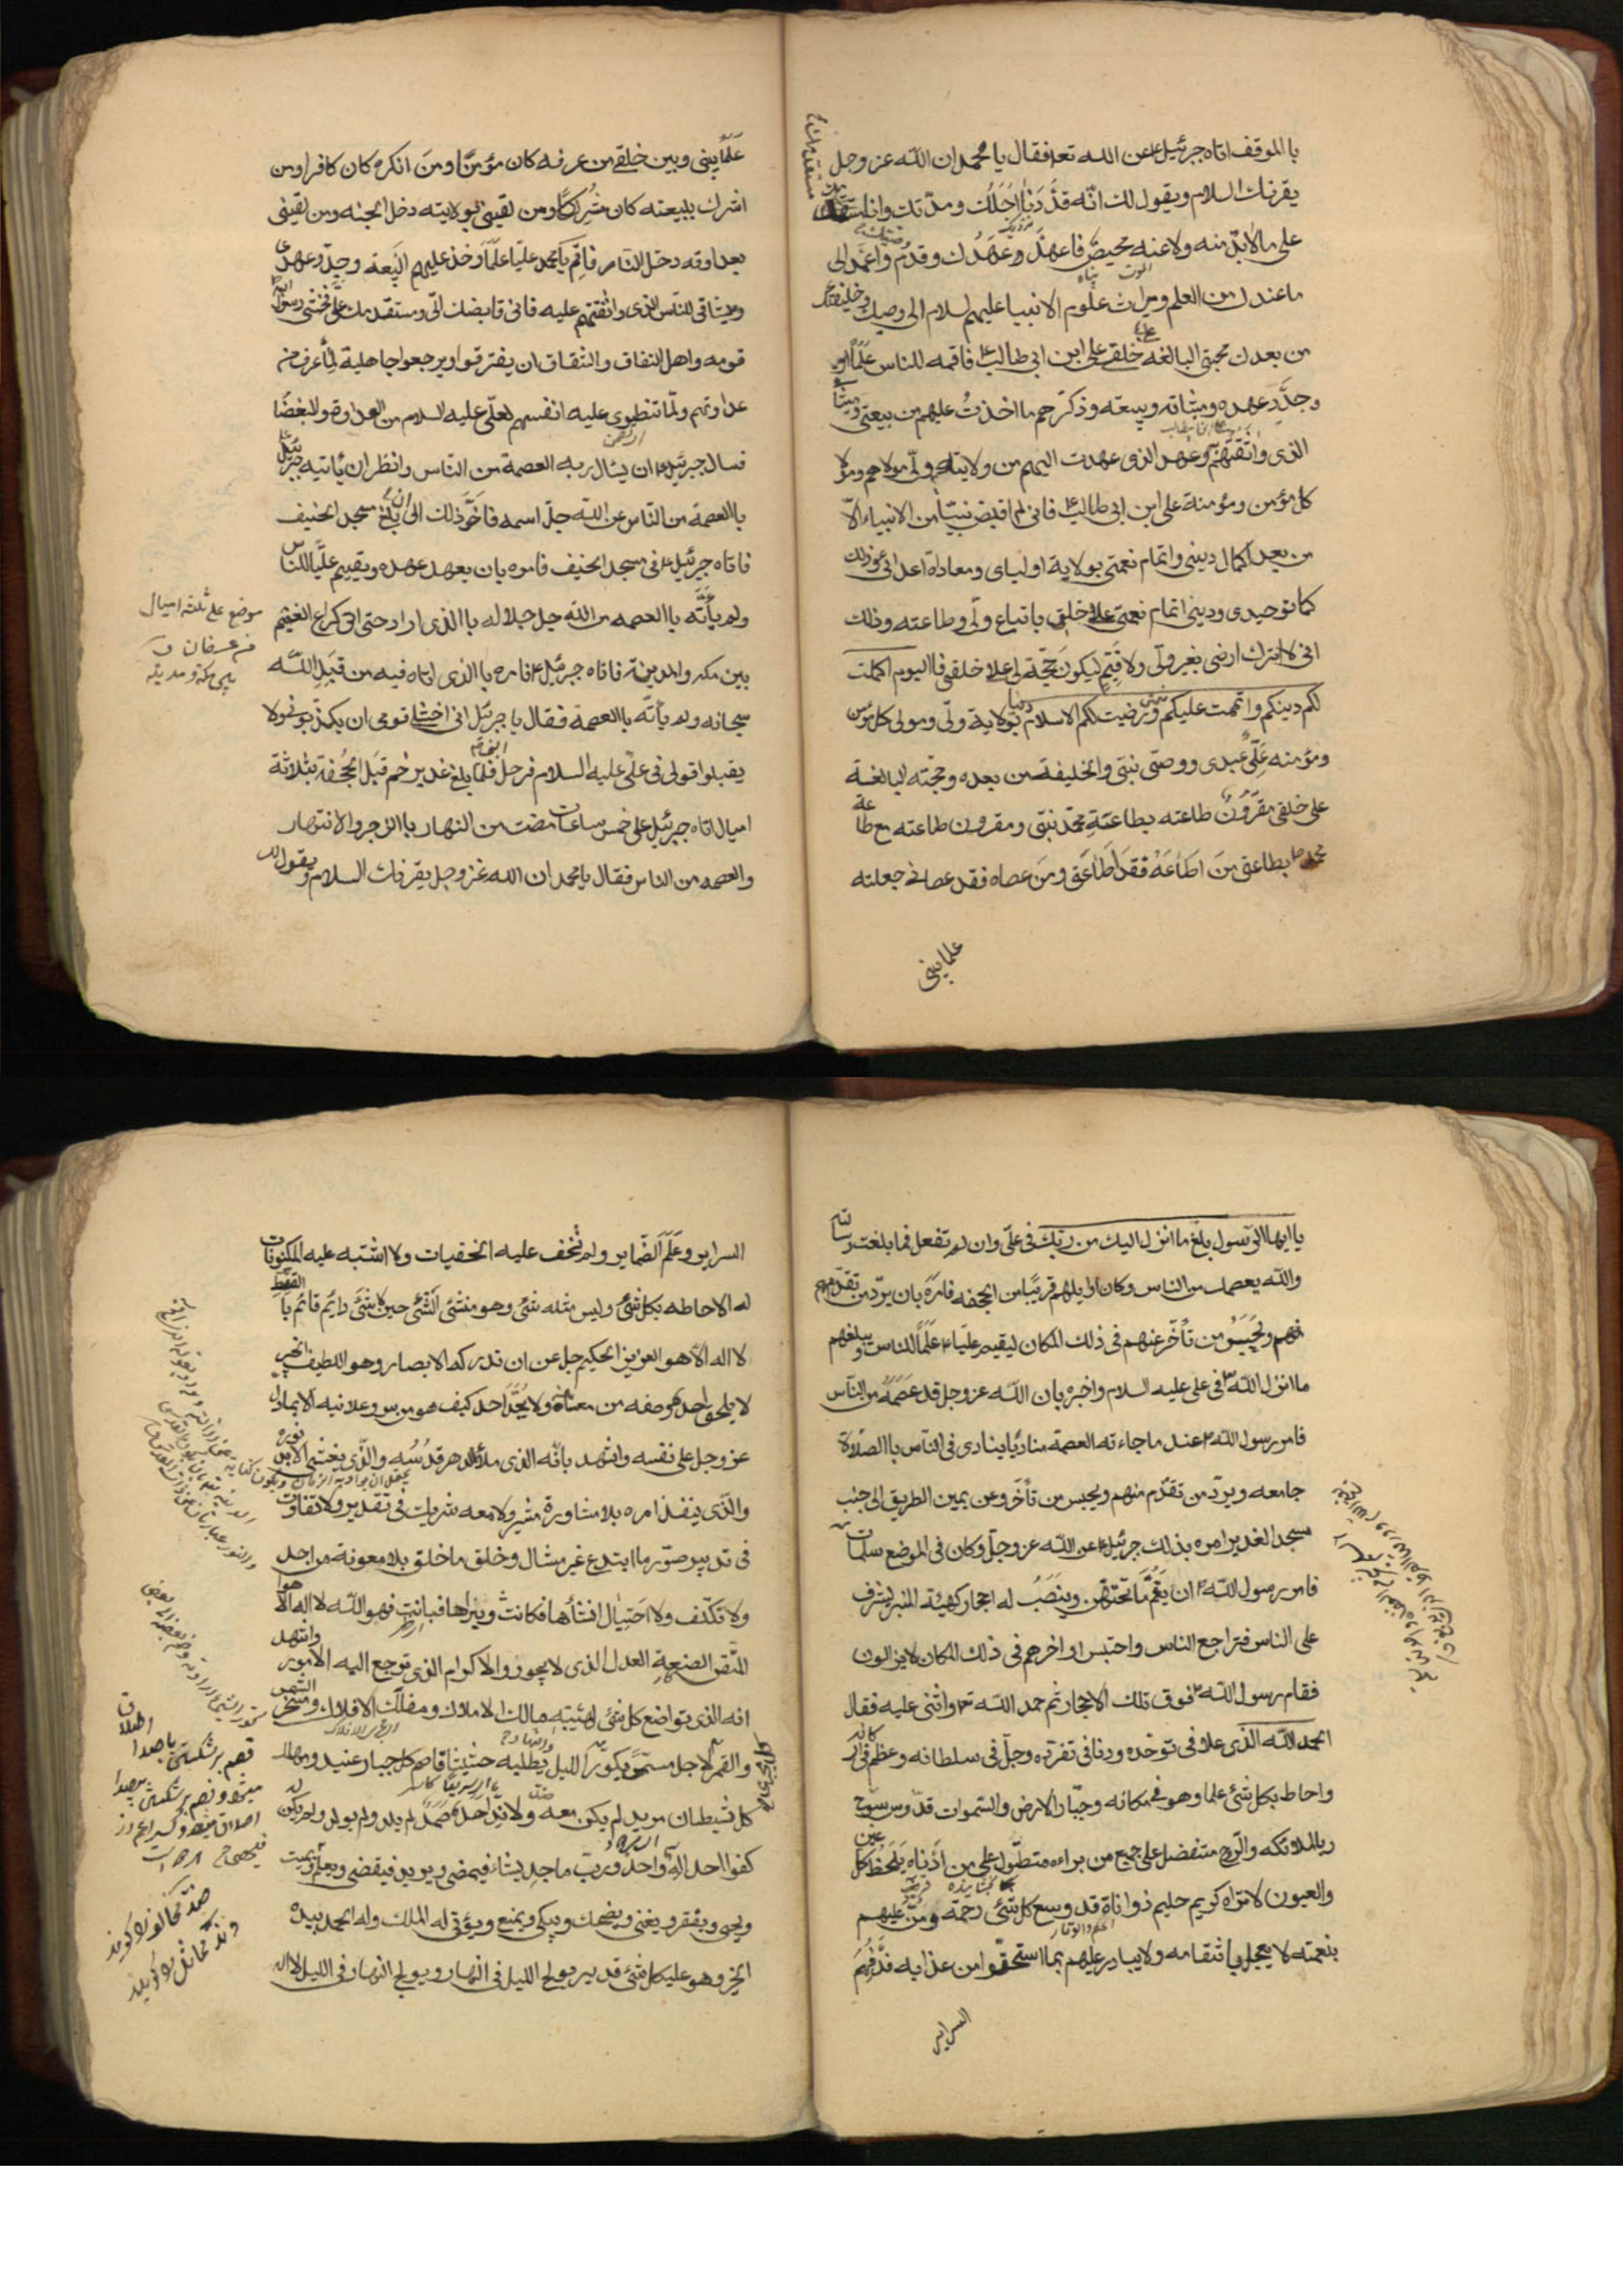 با الموقف اتاه جبرئيل ع عن الله تعا فقال يا محمد ان الله عز وجل
يقرئك السلام ويقول لك انّه قد دَنٰا اجَلُك ومدّتك وانا
على ما لا بدّ منه ولا عنه محيص فاعهد وعَهدك وقدم واعمد الى
ما عندك من العلم وميراث علوم الانبيا عليهم لسلام الى وصيك وخليفتك
من بعدك حجتى البالغه على خلقى على ابن ابى طالب ع فاقمه للناس عَلَمًا
وجدَّد عهده وميثاقه وبيعته وذكرهم ما اخذتُ عليهم من بيعتى وميثاقى
الذى واثقتهم وعهد الذى عهدت اليهم من ولاية ولّى مولاهم ومولا
كل مؤمن ومؤمنة على ابن ابى طالب ع فانى لم اقبض نبيّاً من الانبياء الّا
من بعد اكمال دينى واتمام نعمتى بولاية اوليای ومعاداة اعدائى وذلك
كما توحيدى ودينى اتمام نعمتى على خلقى باتباع ولّى وطاعته وذلك
انى لا اترك ارضى بغير ولّى ولا قيّم ليكونَ حجّة لى على خلقى فاليوم اكملت
لكم دينكم واتممت عليكم نعمتى ورضيت لكم الاسلام دينا بولاية ولّى ومولى كل مؤمن
ومؤمنه عَلِىّ عبدى ووصّى نبيّى والخليفة من بعده وحجّته البالغة
على خلقى مقرُونٌ طاعته بطاعَةِ محمّد نبيّى ومقرون طاعته مع طاعة
محمد ص بطاعتى مَنَ اطَاعَهُ فقدَ اَطاعَنى ومَن عصاه فقد عصانى جعلته
علما بينى
عَلَمًا بينى وبين خلقى من عرفه كان مؤمنًا ومنَ انكره كان كافرا ومن
اشرك ببيعته كان مشركًا ومن لقينى بولايته دخل الجنه ومن لقينى
بعداوته دخل النار فاقِم يا محمد عليّا علَمًا وَخذ عليهم البَيعة وجدّد عهدى
وميثاقى للنّاس الذى واثقتهم عليه فانى قابضك الىّ ومستقدمك علىّ فخشى رسول الله
قومه واهل النفاق والشقاق ان يفترقوا ويرجعوا جاهلية لمّا عرف من
عداوتهم ولمّا تنطوى عليه انفسهم لعلّى عليه السلام من العداوة والبغضا
فسال جبرئيل ع ان يسال ربه العصمة من النّاس وانظر ان يأتيه جبرئيل
با العصمة من النّاس عن اللّه جلّ اسمه فاخّرَ ذلك الى ان بلغ مسجد الخيف
فاتاه جبرئيل ع فى مسجد الخيف فامره بان يعهد عهده ويقيم عليًّا للناس
ولم يأتَه با العصمه من اللّه جل جلاله باالذى اراد حتى اتى كراع الغميم
بين مكه والمدينة فاتاه جبرئيل ع فامره باالذى اتاه فيه من قبَلِ اللّه
سبحانه ولم يأته باالعصمة فقال يا جبرئيل انى اخشى قومى ان يكذبونى ولا
يقبلوا قولى فى علّى عليه السلام فرحل فلما بلغ غدير خم قبَل الجُحفة بثلاثة
اميال اتاه جبرئيل على خمس ساعات مضت من النهار باالزجر والانتهار
والعصمه من الناس فقال يا محمد ان الله عز وجل يقرئك السلام ويقول لك
موضع على ثلثه اميال
من عسفان
يا ايها الرّسول بلّغ ما انزل اليك من ربّك فى علّى وان لم تفعل فما بلغت رسالته
والله يعصمك من الناس وكان اوايلهم قريبًا من الجحفه فامَرَه بان يردّ من تقدّم
منهم ويَحبَسُ من تأخّر عنهم فى ذلك المكان ليقيم عليّا ع عَلَمًا للناس ويبلغهم
ما انزل اللّه فى على عليه السلام واخبره بان اللّه عز وجل قد عَصَمَهُ من النّاس
فامر رسول اللّه عند ما جاءته العصمة مناديًا ينادى فى النّاس باالصّلاة
جامعه ويردّ من تقدّم منهم ويحبس من تأخّر وعن يمين الطريق الى جنب
مسجد الغدير امره بذلك جبرئيل ع عن اللّه عز وجلّ وكان فى الموضع سلمات
فامر رسول اللّه ان يَقُمّ مّا تحتهنّ وينصَبُ له احجار كهيئة المنبر ليشرف
على الناس فتراجع الناس واحتبس اواخرهم فى ذلك المكان لا يزالون
فقام رسول اللّه فوق تلك الاحجار ثم حمد اللّه تع واثنى عليه فقال
الحمد للّه الذى علا فى توحده ودنا فى تفرّده وجلّ فى سلطانه وعظم فى اركانه
واحاط بكل شئ علما وهو فى مكانه وجبّار الارض والسّموات قدّوس سبّوح
رب الملائكه والرّوح متفضل على جميع من براءه متطوّل على من ادناه يَلحَظُ كل عين
والعيون لا تراه كريم حليم ذو اناة قد وسع كل شئ رحمة ومَنّ عليهم
بنعمته لا يعجل بانتقامه ولا يبادر عليهم بما استحقّوا من عذابه قد فهم
السراير
السراير وعَلَم الضّماير ولم تخف عليه الخفيات ولا اشتبه عليه المكنونات
له الاحاطه بكل شئ وليس مثله شئ وهو منشئ الشّئ حين لا شئ دايم قائم با القسط
لا اله الّا هو العزيز الحكيم جل عن ان تدركه الابصار وهو اللطيف الخبير
لا يلحق احد وصفه من معناه ولا يُحدّ احد كيف هو من سر وعلانيه الا بما دل
عز وجل على نفسه واشهد بانّه الذى ملأ الدهر قدسُه والّذى يغشى الابد نوره
والّذى ينفذ امره بلا مشاورة مشير ولا معه شريك فى تقدير ولا تفاوت
فى تدبير صوّر ما ابتدع غير مثال وخلق ما خلق بلا معونة من احد
ولا تكلّف ولا احَتِيٰال انشأها فكانت وبرأها فبانت فهو اللّه لا اله الّا هوا
المتقن الصنعة العدل الذى لا يجور والاكرام الذى ترجع اليه الامور واشهد
انه الذى تواضع كل شئ لهيبته مالك الاملاك ومفلّك الافلاك ومسخر الشمس
والقمر لاجل مسمّى يكور الليل يطلبه حثيثا قاصم كل جبار عنيد ومهلك
كل شيطان مريد لم يكن معه ضد ولا ندّ احد صمد لم يلد ولم يولد ولم يكن له
كفوا احد اله واحد ورب ماجد يشاء فيمضى ويريد فيقضى ويعلم ويميت
ويحيى ويفقر ويغنى ويضحك ويبكى ويمنع ويؤتى له الملك وله الحمد بيده
الخير وهو على كل شئ قدير يولج الليل فى النهار ويولج النهار فى الليل لا اله